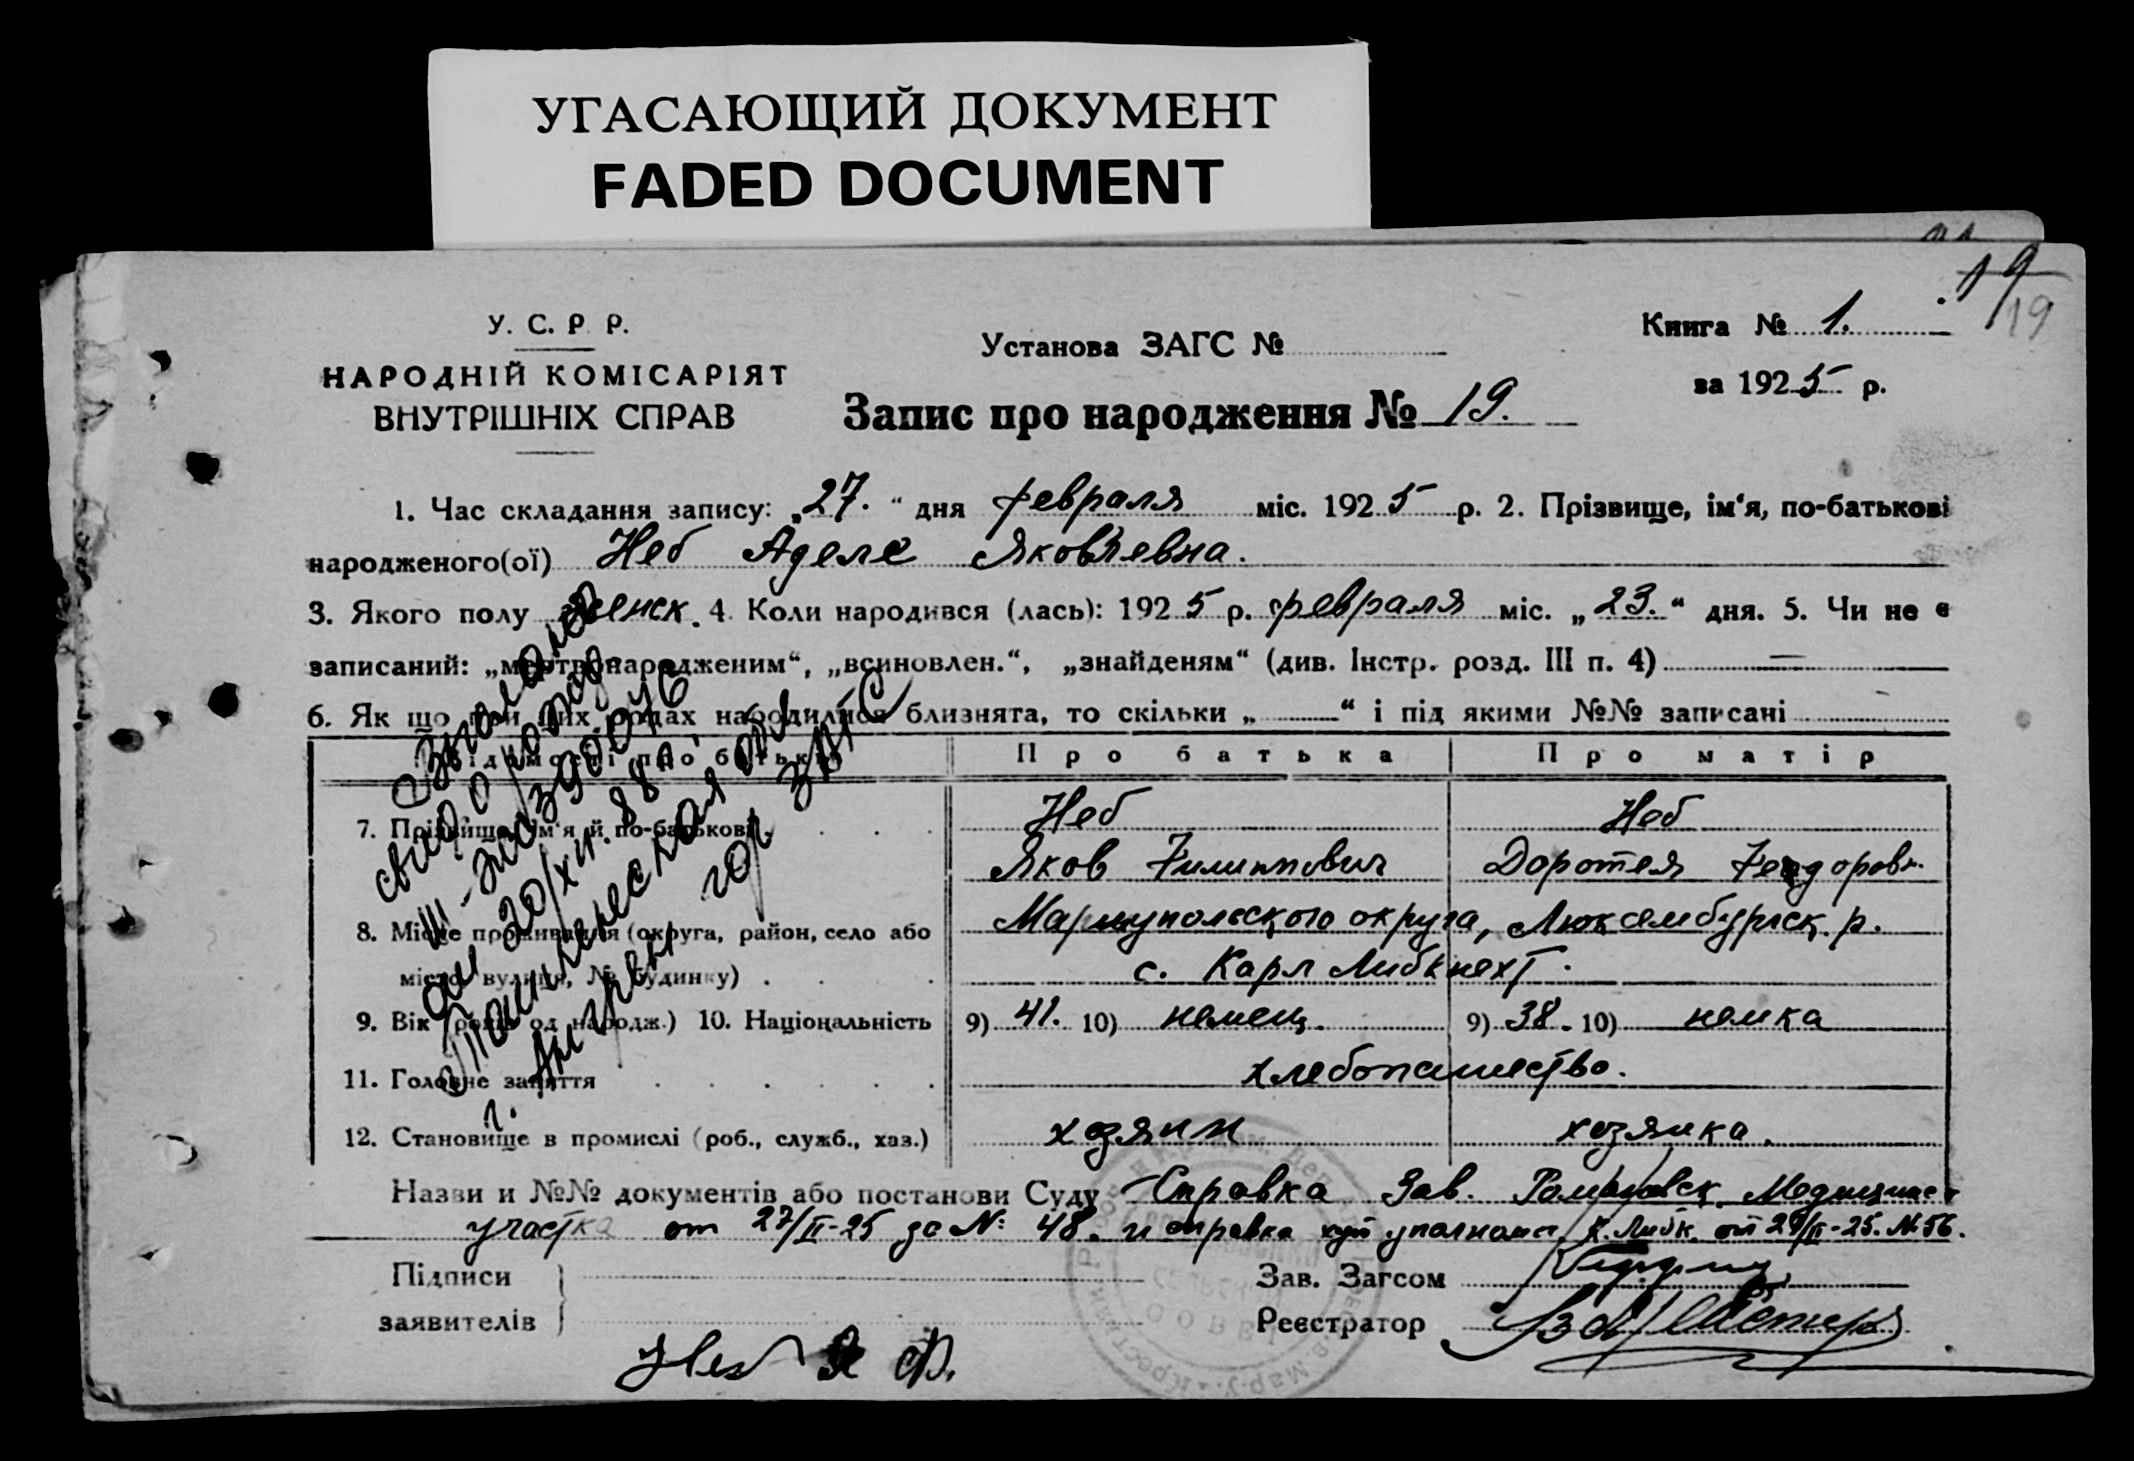 УГАСАЮЩИЙ ДОКУМЕНТ
FADED DOCUMENT
19
19
У. С. Р. Р.
НАРОДНІЙ КОМІСАРІЯТ
ВНУТРІШНІХ СПРАВ
Установа ЗАГС №
Книга № 1.
за 1925 р.
Запис про народження № 19.
1. Час складання запису: „27.“ дня февраля міс. 1925 р. 2. Прізвище, ім‘я, по-батькові
народженого(ої) Неб Аделе Яковлевна.
3. Якого полу женск. 4. Коли народився (лась): 1925 р. февраля міс. „23.“ дня. 5. Чи не є
записаний: „мертвонародженим“, „всиновлен.“, „знайденям“ (див. Інстр. розд. III п. 4) —
6. Як що при цих родах народилися близнята, то скільки „ “ і під якими №№ записані
Відомості про батьків Про батька Про матір
7. Прізвище, ім‘я й по-батькові Неб Неб
Яков Филиппович Доротея
8. Місце проживання (округа, район, село або Мариупольского округа, Люксембургск. р.
місто, вулиця, № будинку) с. Карл Либкнехт.
9. Вік (років од народж.) 10. Національність 9) 41. 10) немец. 9) 38. 10) немка
11. Головне заняття хлебопашество.
12. Становище в промислі (роб., служб., хаз.) хозяин хозяйка.
Назви и №№ документів або постанови Суду Справка Зав.
участка от 27/II-25 за № 48. и справка К. Либк. от 27/II-25. № 56.
Підписи
заявителів
Зав. Загсом
Реєстратор
Неб Я Ф.
от 20/XII. 88 г.
г. Ангрен гор ЗАГС